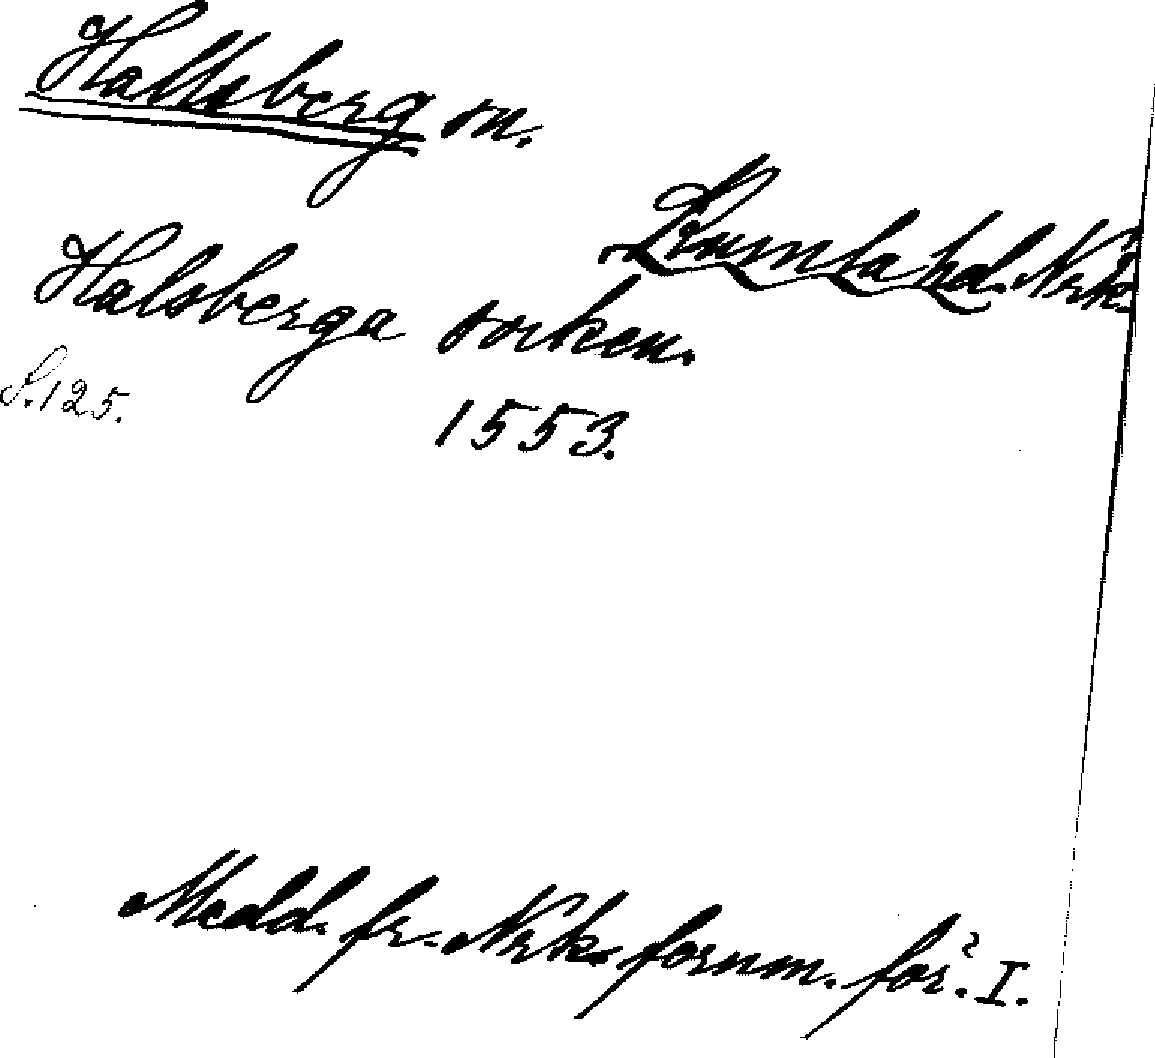 Hallsberg sn.
Kumla hd. Nrk.
Halsberga soken.
S. 125.
1553.
Medd. fr. Nrks fornm. för. I.